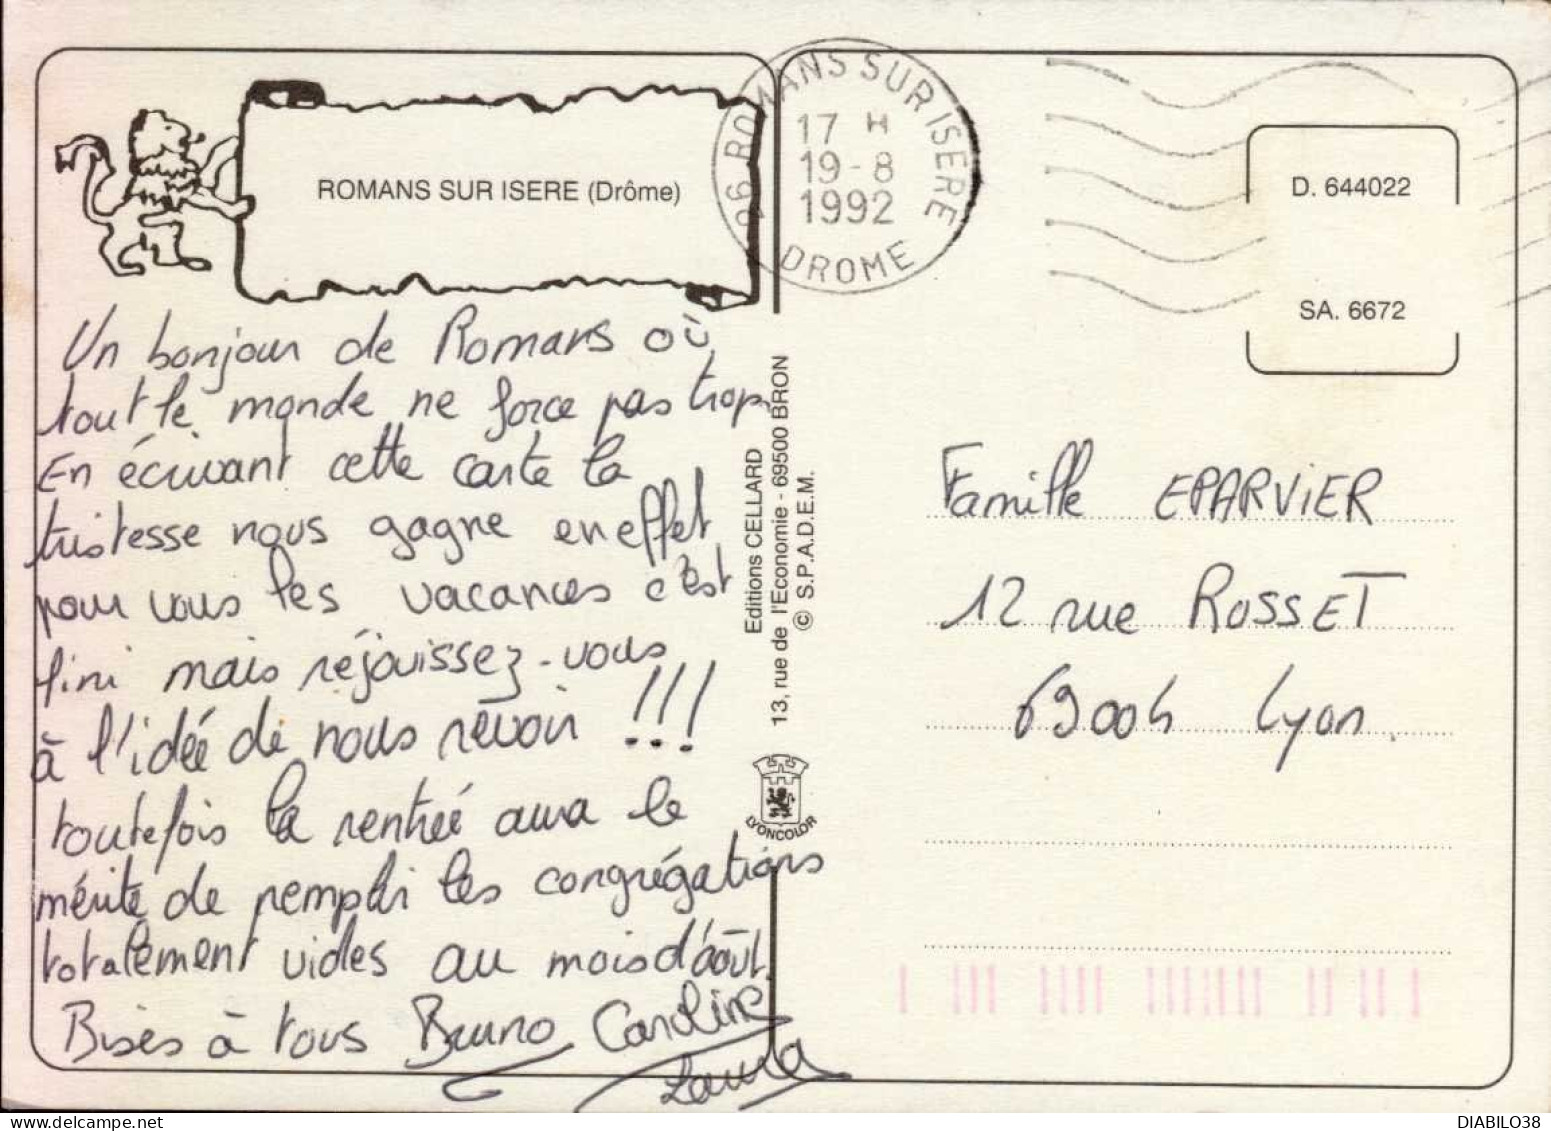 ROMANS SUR ISERE (Drôme)
26 ROMANS SUR ISERE
17 H
19-8
1992
DROME
D. 644022
SA. 6672
Un bonjour de Romans où
tout le monde ne force pas trop.
En écrivant cette carte la
tristesse nous gagne en effet
pour vous les vacances c'est
fini mais réjouissez-vous
à l'idée de nous revoir !!!
toutefois la rentrée aura le
mérite de remplir les congrégations
totalement vides au mois d'août.
Bises à tous Bruno Caroline
Laura
Editions CELLARD
13, rue de l'Economie - 69500 BRON
© S.P.A.D.E.M.
LYONCOLOR
Famille EPARVIER
12 rue ROSSET
69004 Lyon.
DIABILO38